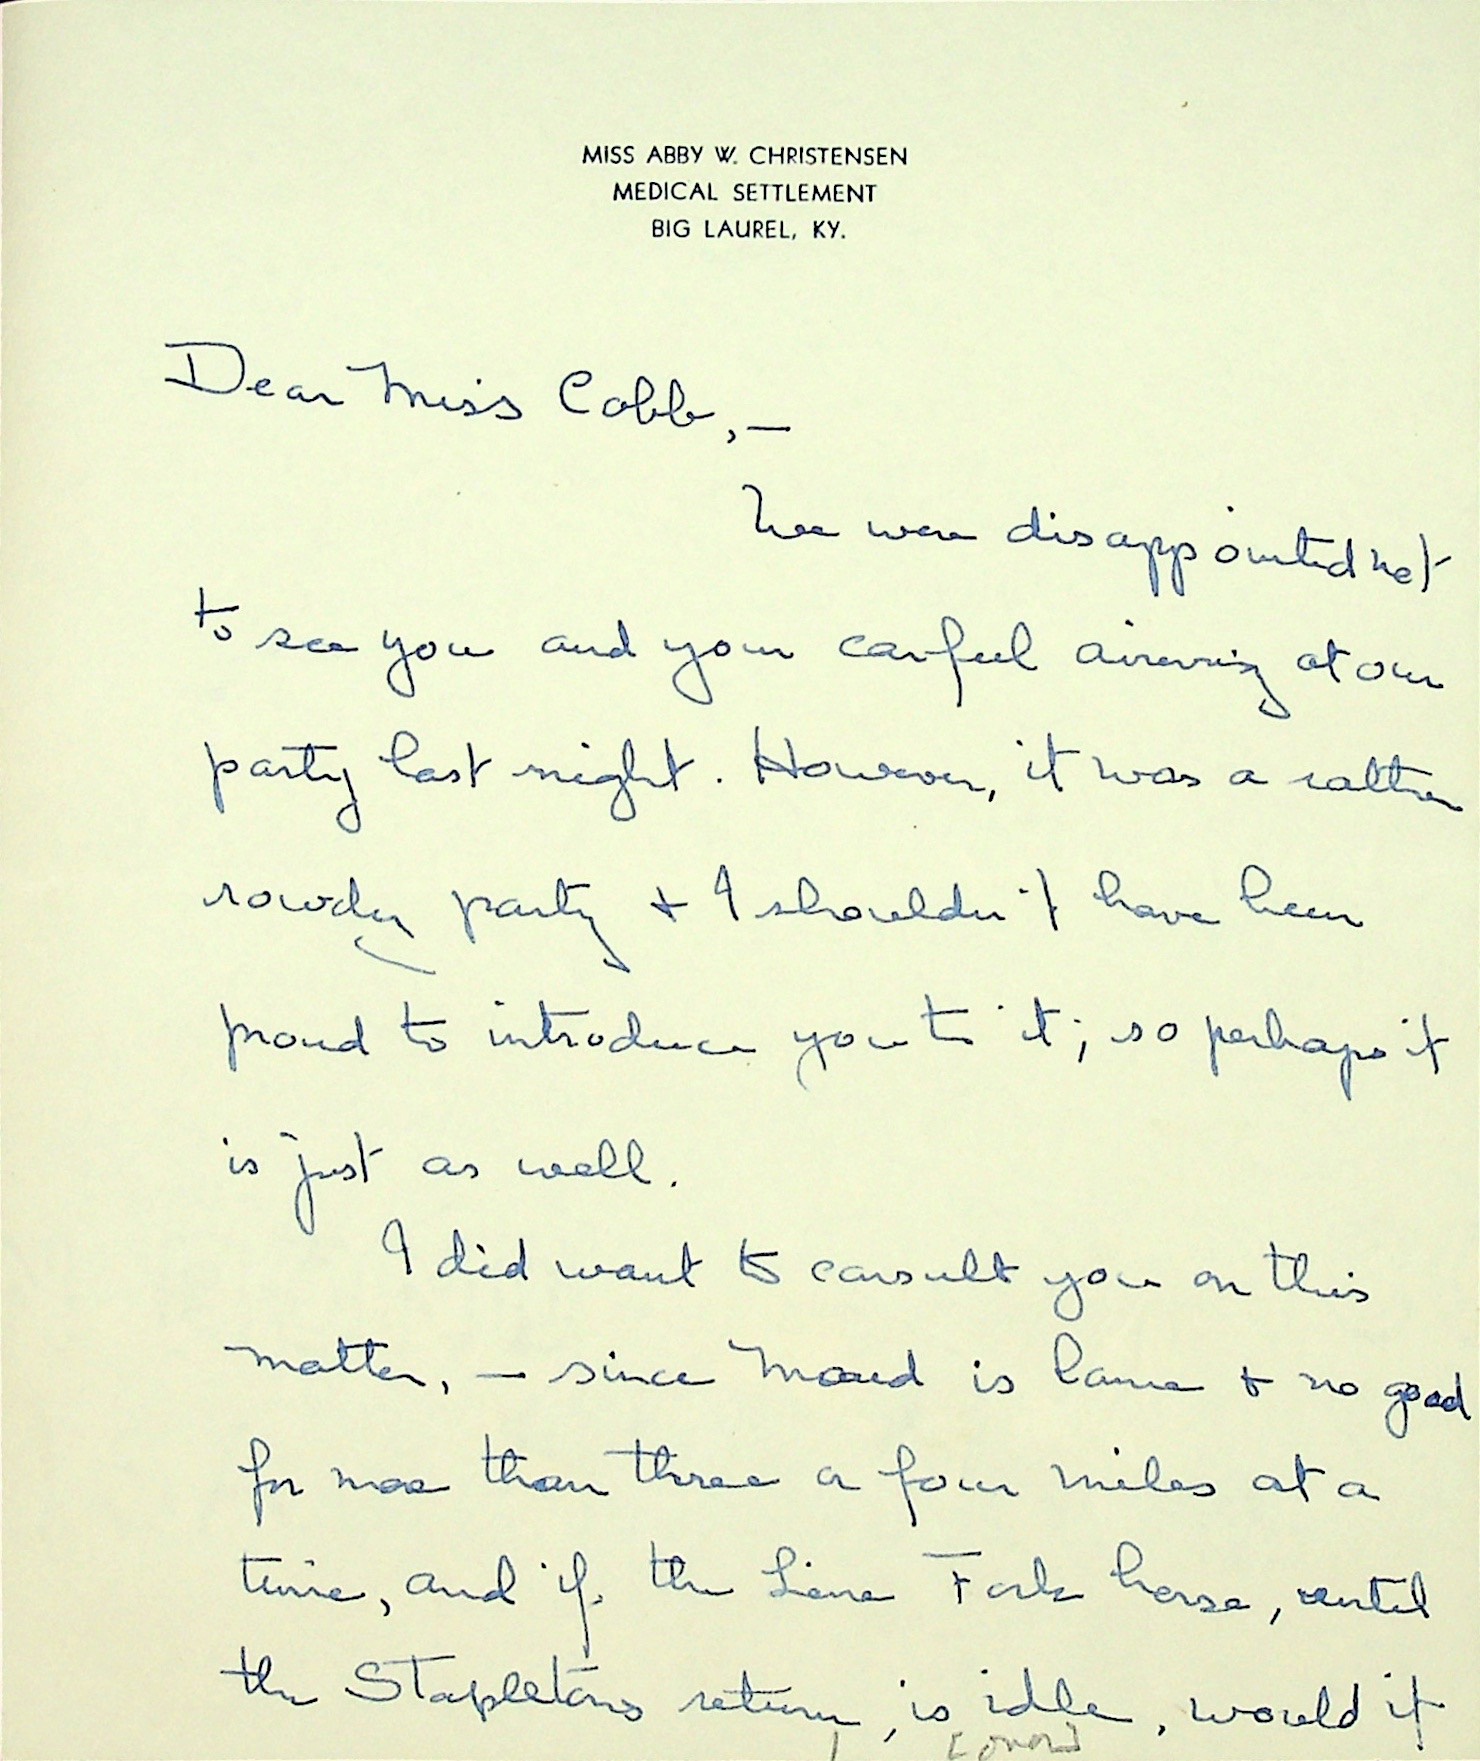 MISS ABBY W. CHRISTENSEN
MEDICAL SETTLEMENT
BIG LAUREL, KY.
Dear Miss Cobb, —
We were disappointed not
to see you and your carful arriving at our
party last night. However, it was a rather
rowdy party + I shouldn't have been
proud to introduce you to it; so perhaps it
is just as well.
I did want to consult you on this
matter, — since Maud is lame + no good
for more than three or four miles at a
time, and if the Line Fork horse, until
the Stapletons return, is idle, would it
[over]